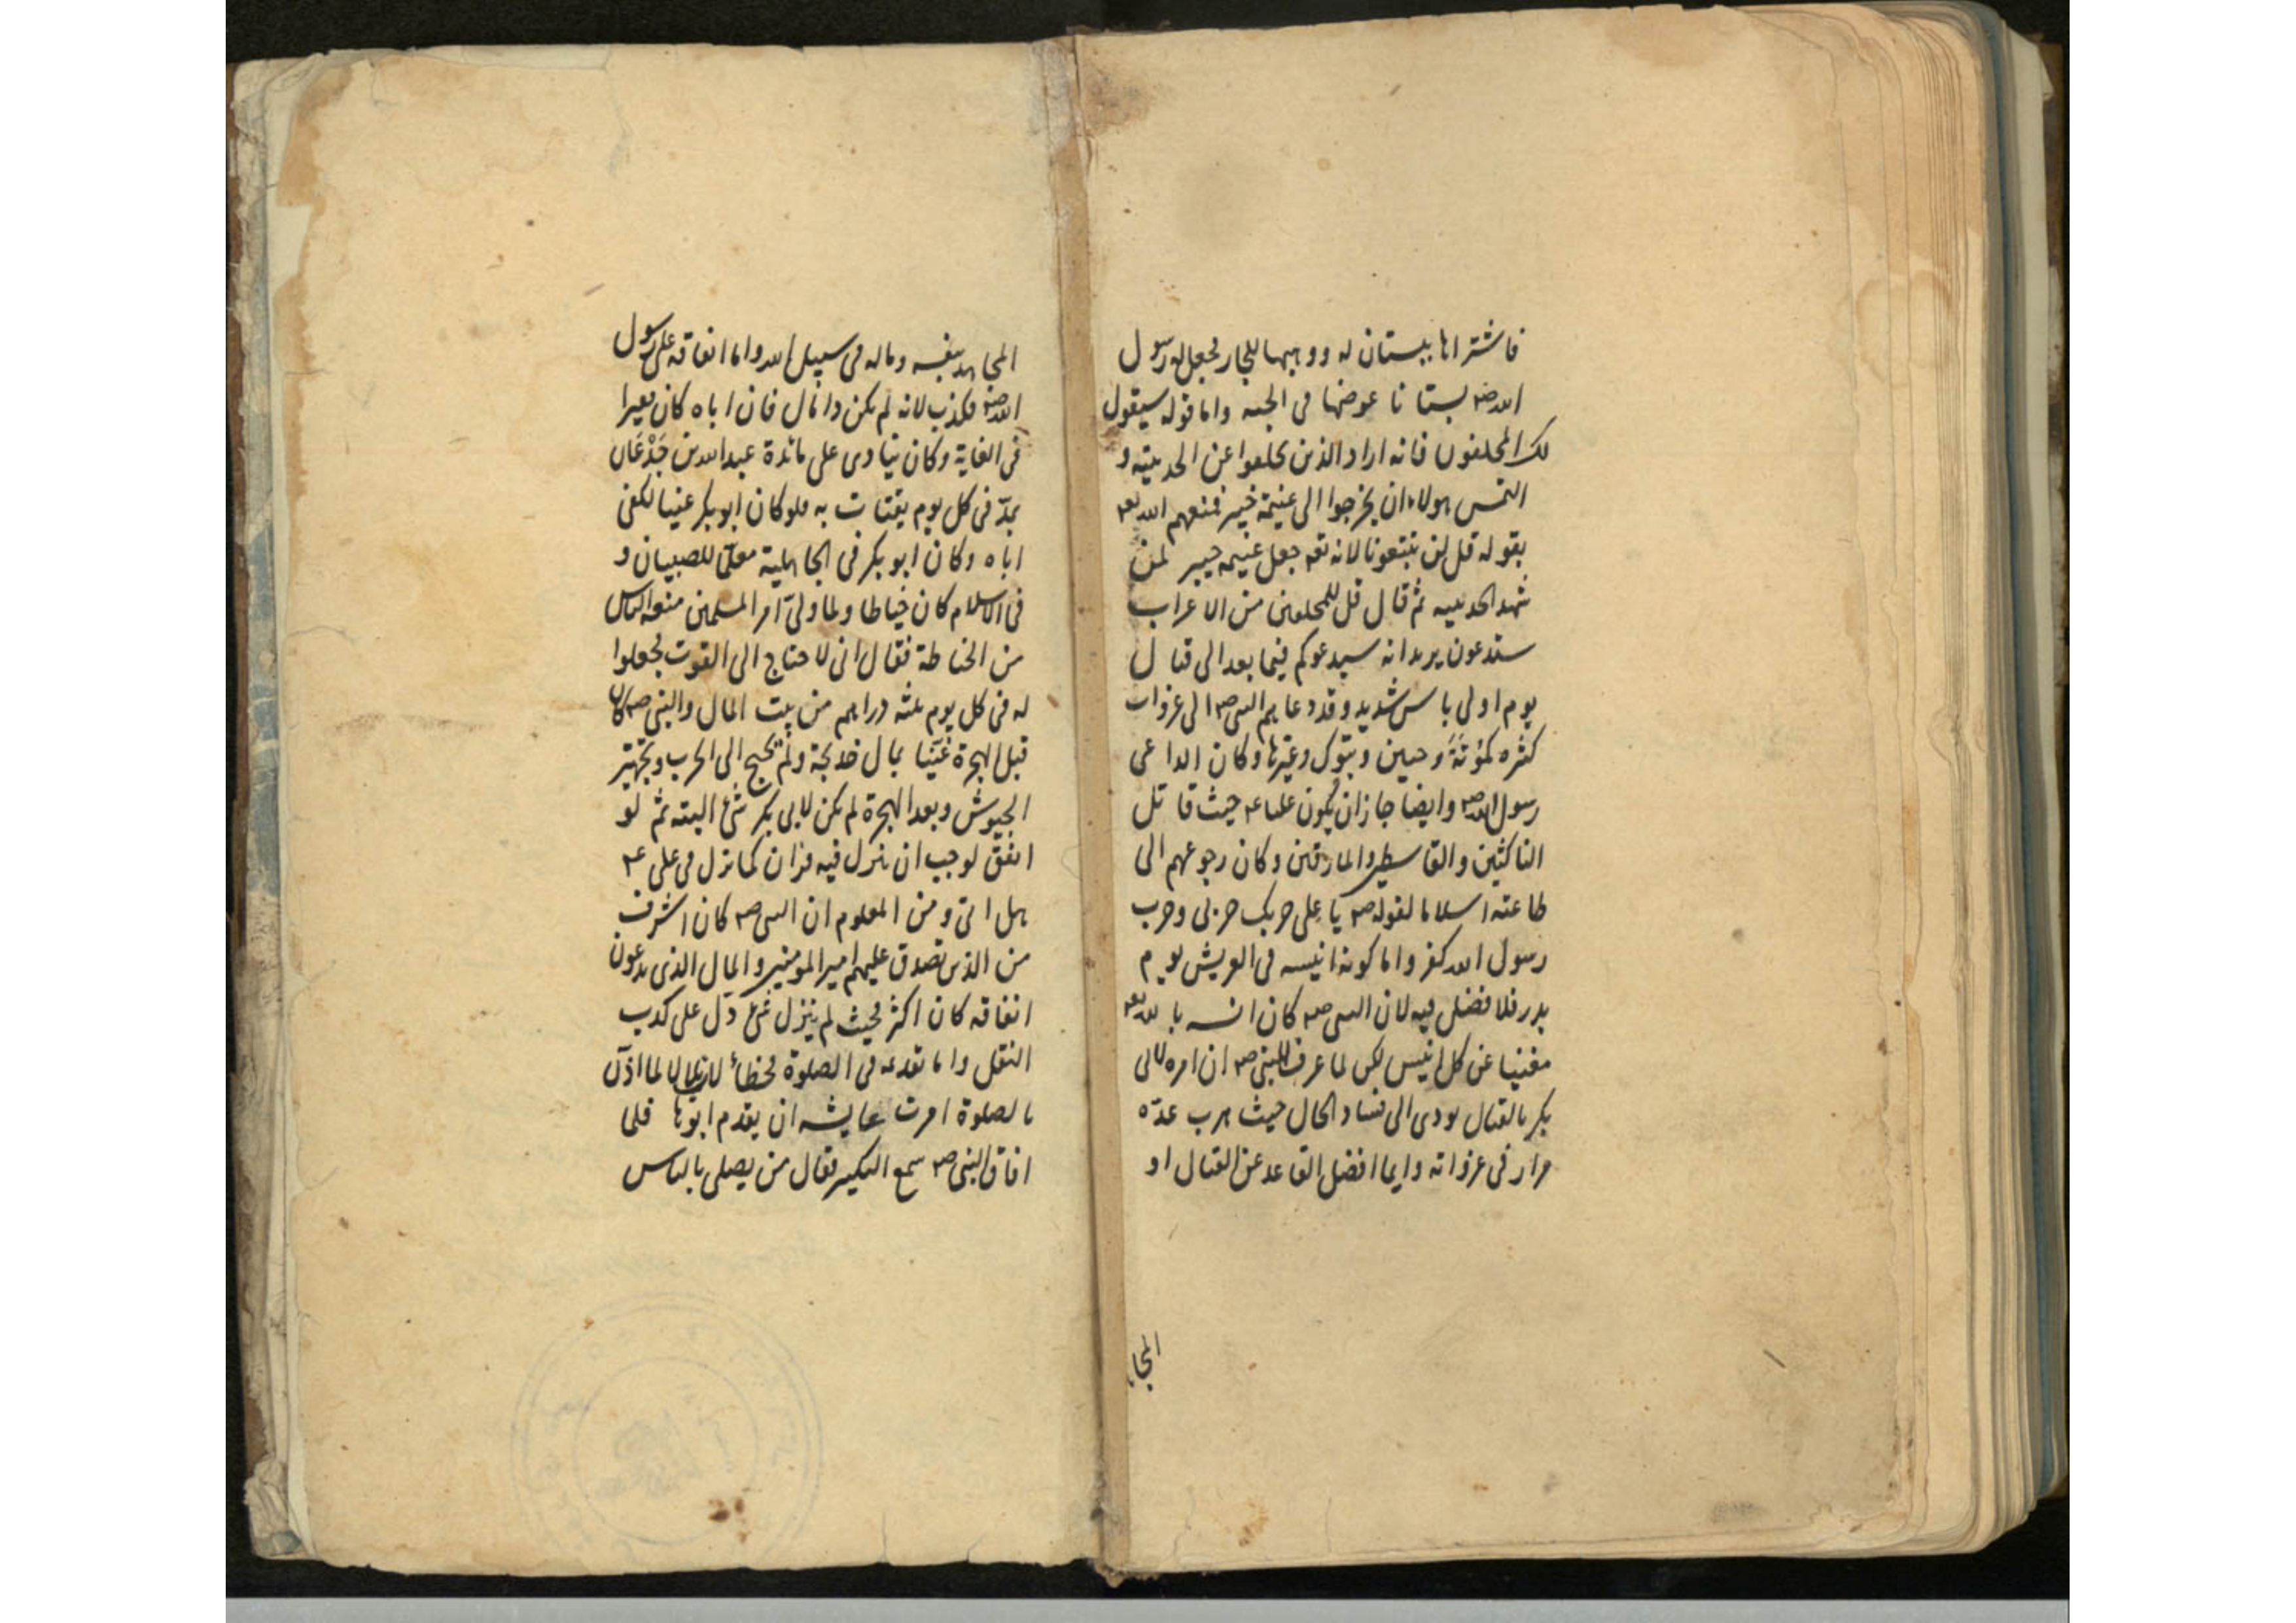 فاشتراها ببستان له ووهبها للجار فجعل له رسول
الله صم بستانا عوضها فى الجنه واما قوله سيقول
لك المخلفون فانه اراد الذين تخلفوا عن الحديبية و
التمس هولاء ان يخرجوا الى غنيمة خيبر فمنعهم الله تعه
بقوله قل لن تتبعونا لانه تعه جعل غنيمه خيبر لمن
شهد الحديبيه ثم قال قل للمخلفين من الاعراب
ستدعون يريد انه سيدعوكم فيما بعد الى قتال
يوم اولى باس شديد وقد دعاهم النبى صم الى غزوات
كثره كمؤتة وحنين وتبوك وغيرها وكان الداعى
رسول الله صم وايضا جاز ان يكون عليا عم حيث قاتل
الناكثين والقاسطين والمارقين وكان رجوعهم الى
طاعته اسلاما لقوله صم يا على حربك حربى وحرب
رسول الله كفر واما كونه انيسه فى العريش يوم
بدر فلا فضل فيه لان النبى صم كان انسه بالله تعه
مغنيا عن كل انيس لكن لما عرف النبى صم ان امره لابى
بكر بالقتال يودى الى فساد الحال حيث هرب عدّه
مرار فى غزواته وايما افضل القاعد عن القتال او
المجا
المجاهد بنفسه وماله فى سبيل الله واما انفاقه على رسول
الله صم فكذب لانه لم يكن ذا مال فان اباه كان فقيرا
فى الغاية وكان ينادى على مائدة عبدالله بن جَدْعَان
بمدّ فى كل يوم يقتات به فلو كان ابو بكر غنيا لكفى
اباه وكان ابو بكر فى الجاهلية معلّما للصبيان و
فى الاسلام كان خياطا ولما ولىّ امر المسلمين منعه الناس
من الخياطة فقال انى لاحتاج الى القوت فجعلوا
له فى كل يوم ثلثه دراهم من بيت المال والنبى صم كان
قبل الهجرة غنيّا بمال خديجة ولم يحتج الى الحرب وتجهيز
الجيوش وبعد الهجرة لم يكن لابى بكر شئ البته ثم لو
انفق لوجب ان ينزل فيه قران كما نزل فى على عم
هل اتى ومن المعلوم ان النبى صم كان اشرف
من الذين تصدق عليهم امير المومنين والمال الذى يدعون
انفاقه كان اكثر فحيث لم ينزل شئ دل على كذب
النقل واما تقدمه فى الصلوة فخطأ لان بلالا لما اذّن
بالصلوة امرت عايشه ان يقدم ابوها فلما
افاق النبى صم سمع التكبير فقال من يصلى بالناس